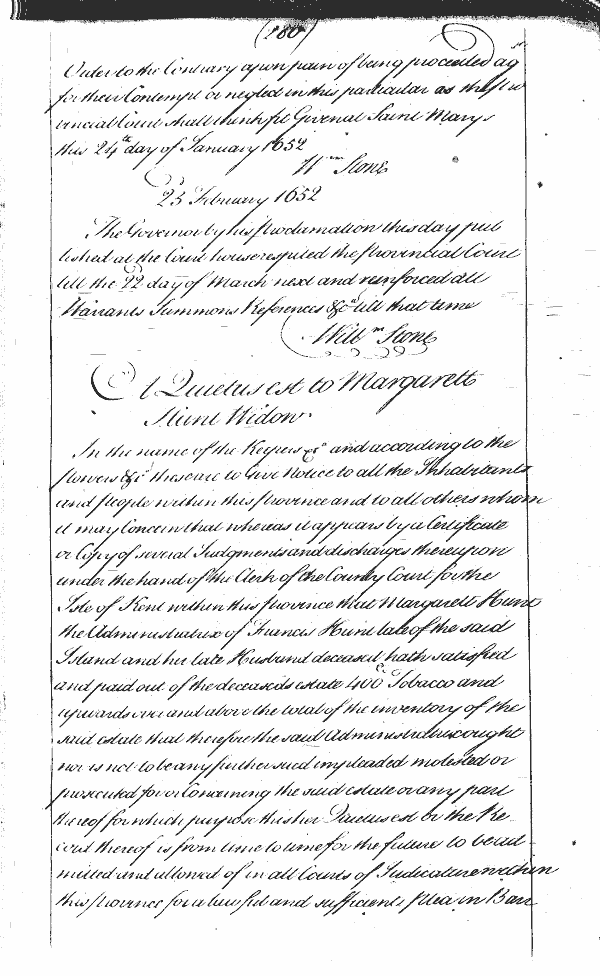 (180)
Order to the Contrary upon pain of being proceeded agst
for their Contempt or neglect in this particular as the Pro
vincial Court shall think fit Given at Saint Marys
this 24th day of January 1652
Wm Stone
23 February 1652
The Governor by his Proclamation this day pub
lished at the Court house respited the Provincial Court
till the 22 day of March next and reinforced all
Warrants Summons References &ca till that time
Willm Stone
A Quietus est to Margarett
Hunt Widow
In the name of the Keepers &ca and according to the
Powers &ca these are to Give Notice to all the Inhabitants
and People within this Province and to all others whom
it may Concern that whereas it appears by a Certificate
or Copy of several Judgments and discharges thereupon
under the hand of the Clerk of the County Court for the
Isle of Kent within this Province that Margarett Hunt
the Administratrix of Francis Hunt late of the said
Island and her late Husband deceased hath satisfied
and paid out of the deceaseds estate 400 Tobacco and
upwards over and above the total of the inventory of the
said estate that therefore the said Administratrix ought
nor is not to be any further sued impleaded molested or
prosecuted for or Concerning the said estate or any part
thereof for which purpose this her Quietus est or the Re
cord thereof is from time to time for the future to be ad
mitted and allowed of in all Courts of Judicature within
this Province for a lawful and sufficient Plea in Barr